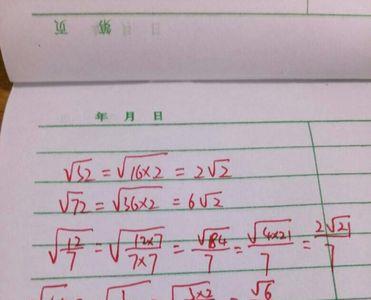 第 页
年 月 日
年 月 日
√32 = √(16×2) = 2√2
√72 = √(36×2) = 6√2
√(12/7) = √((12×7)/(7×7)) = √84/7 = √(4×21)/7 = 2√21/7